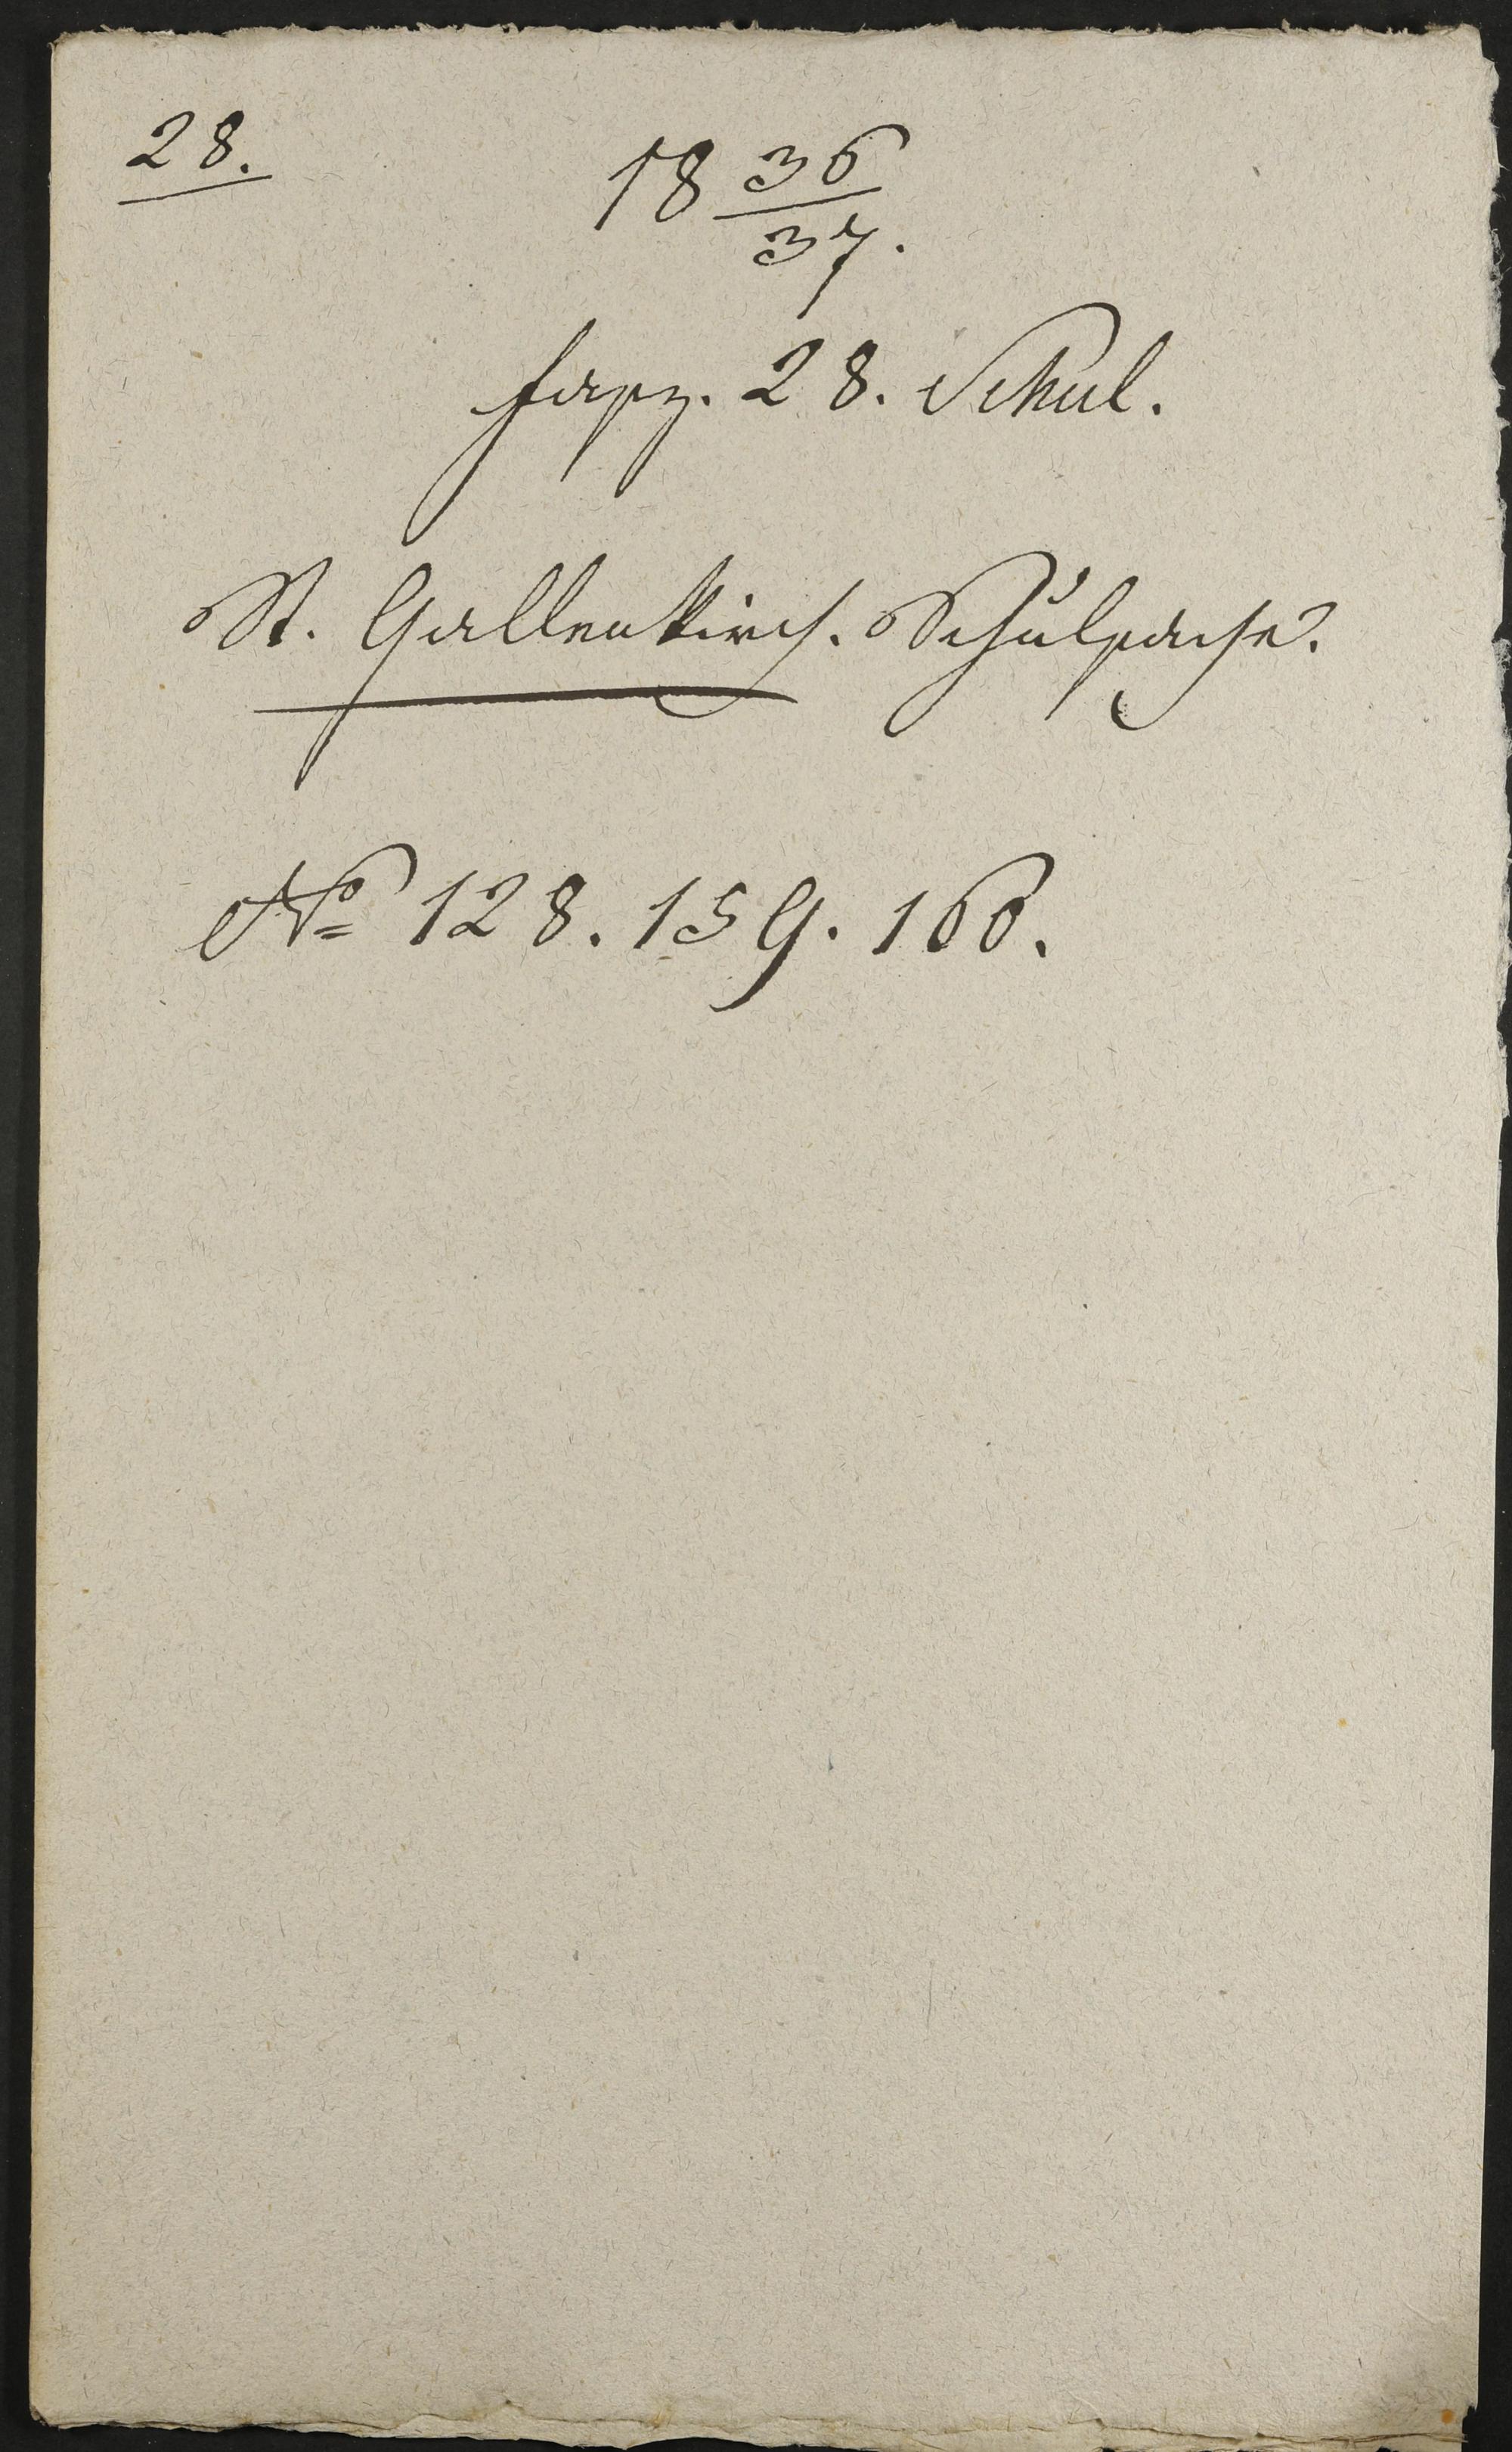 28.
18 36/37.
fasz. 28. Schul.
St. Gallenkirch. Schulsache.
No 128. 159. 160.